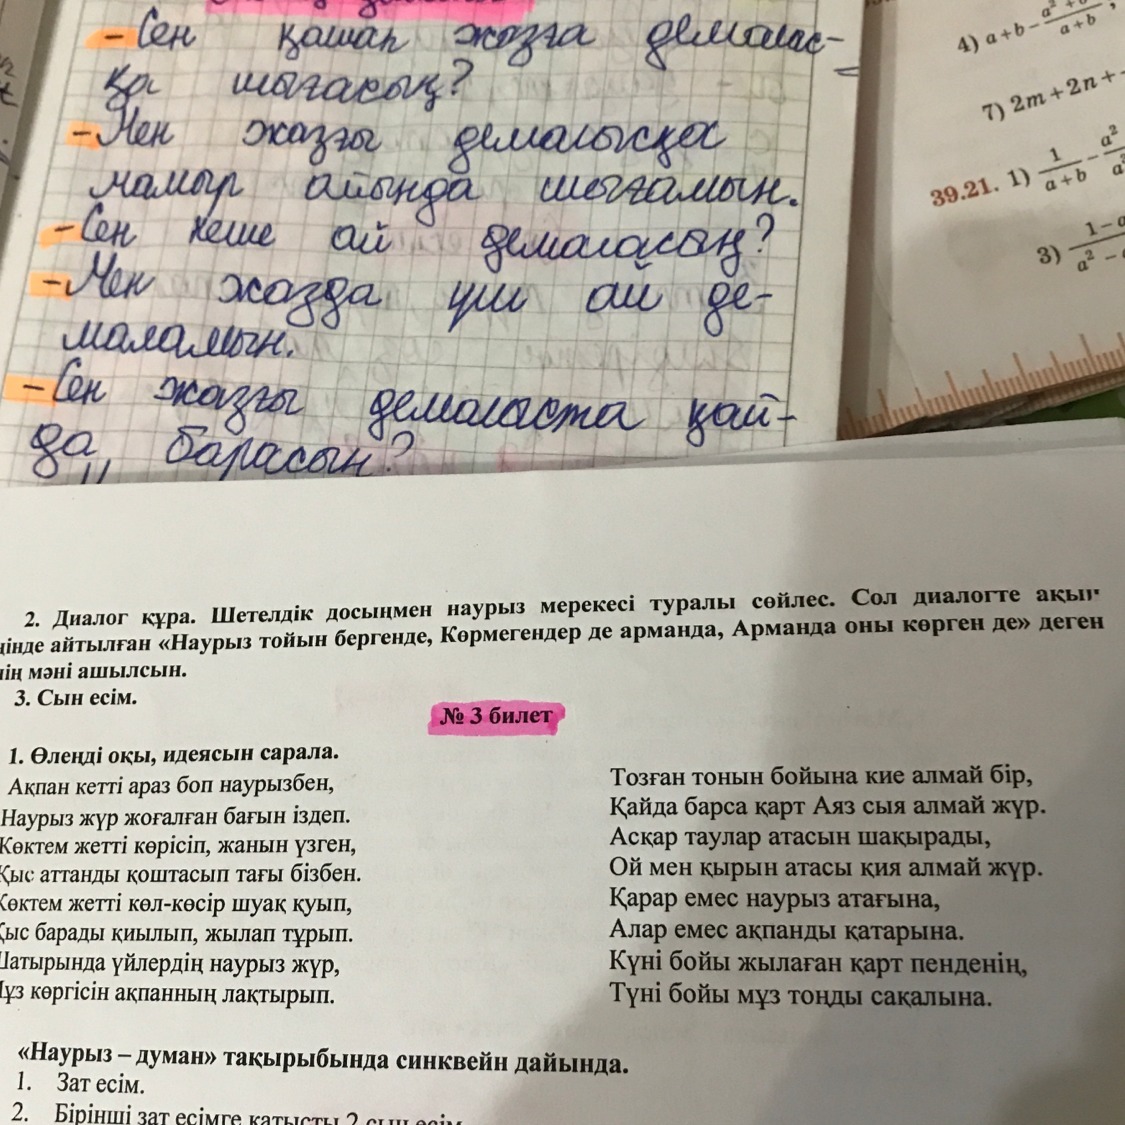 - Сен қашан жазға демалас-
қа шығасың?
- Мен жазғы демалысқа
мамыр айында шығамын.
- Сен неше ай демаласың?
- Мен жазда үш ай де-
маламын.
- Сен жазғы демаласта қай-
да барасың?
4) a+b-
a+b
7) 2m+2n+
39.21. 1) 1/(a+b) - a²
3) 1-a
a² -
2. Диалог құра. Шетелдік досыңмен наурыз мерекесі туралы сөйлес. Сол диалогте ақын
айтылған «Наурыз тойын бергенде, Көрмегендер де арманда, Арманда оны көрген де» деген
мәні ашылсын.
3. Сын есім.
№ 3 билет
1. Өлеңді оқы, идеясын сарала.
Ақпан кетті араз боп наурызбен,
Наурыз жүр жоғалған бағын іздеп.
Көктем жетті көрісіп, жанын үзген,
Қыс аттанды қоштасып тағы бізбен.
Көктем жетті көл-көсір шуақ қуып,
Қыс барады қиылып, жылап тұрып.
Шатырында үйлердің наурыз жүр,
Мұз көргісін ақпанның лақтырып.
Тозған тонын бойына кие алмай бір,
Қайда барса қарт Аяз сыя алмай жүр.
Асқар таулар атасын шақырады,
Ой мен қырын атасы қия алмай жүр.
Қарар емес наурыз атағына,
Алар емес ақпанды қатарына.
Күні бойы жылаған қарт пенденің,
Түні бойы мұз тоңды сақалына.
«Наурыз – думан» тақырыбында синквейн дайында.
1. Зат есім.
2. Бірінші зат есімге қатысты 2 сын есім